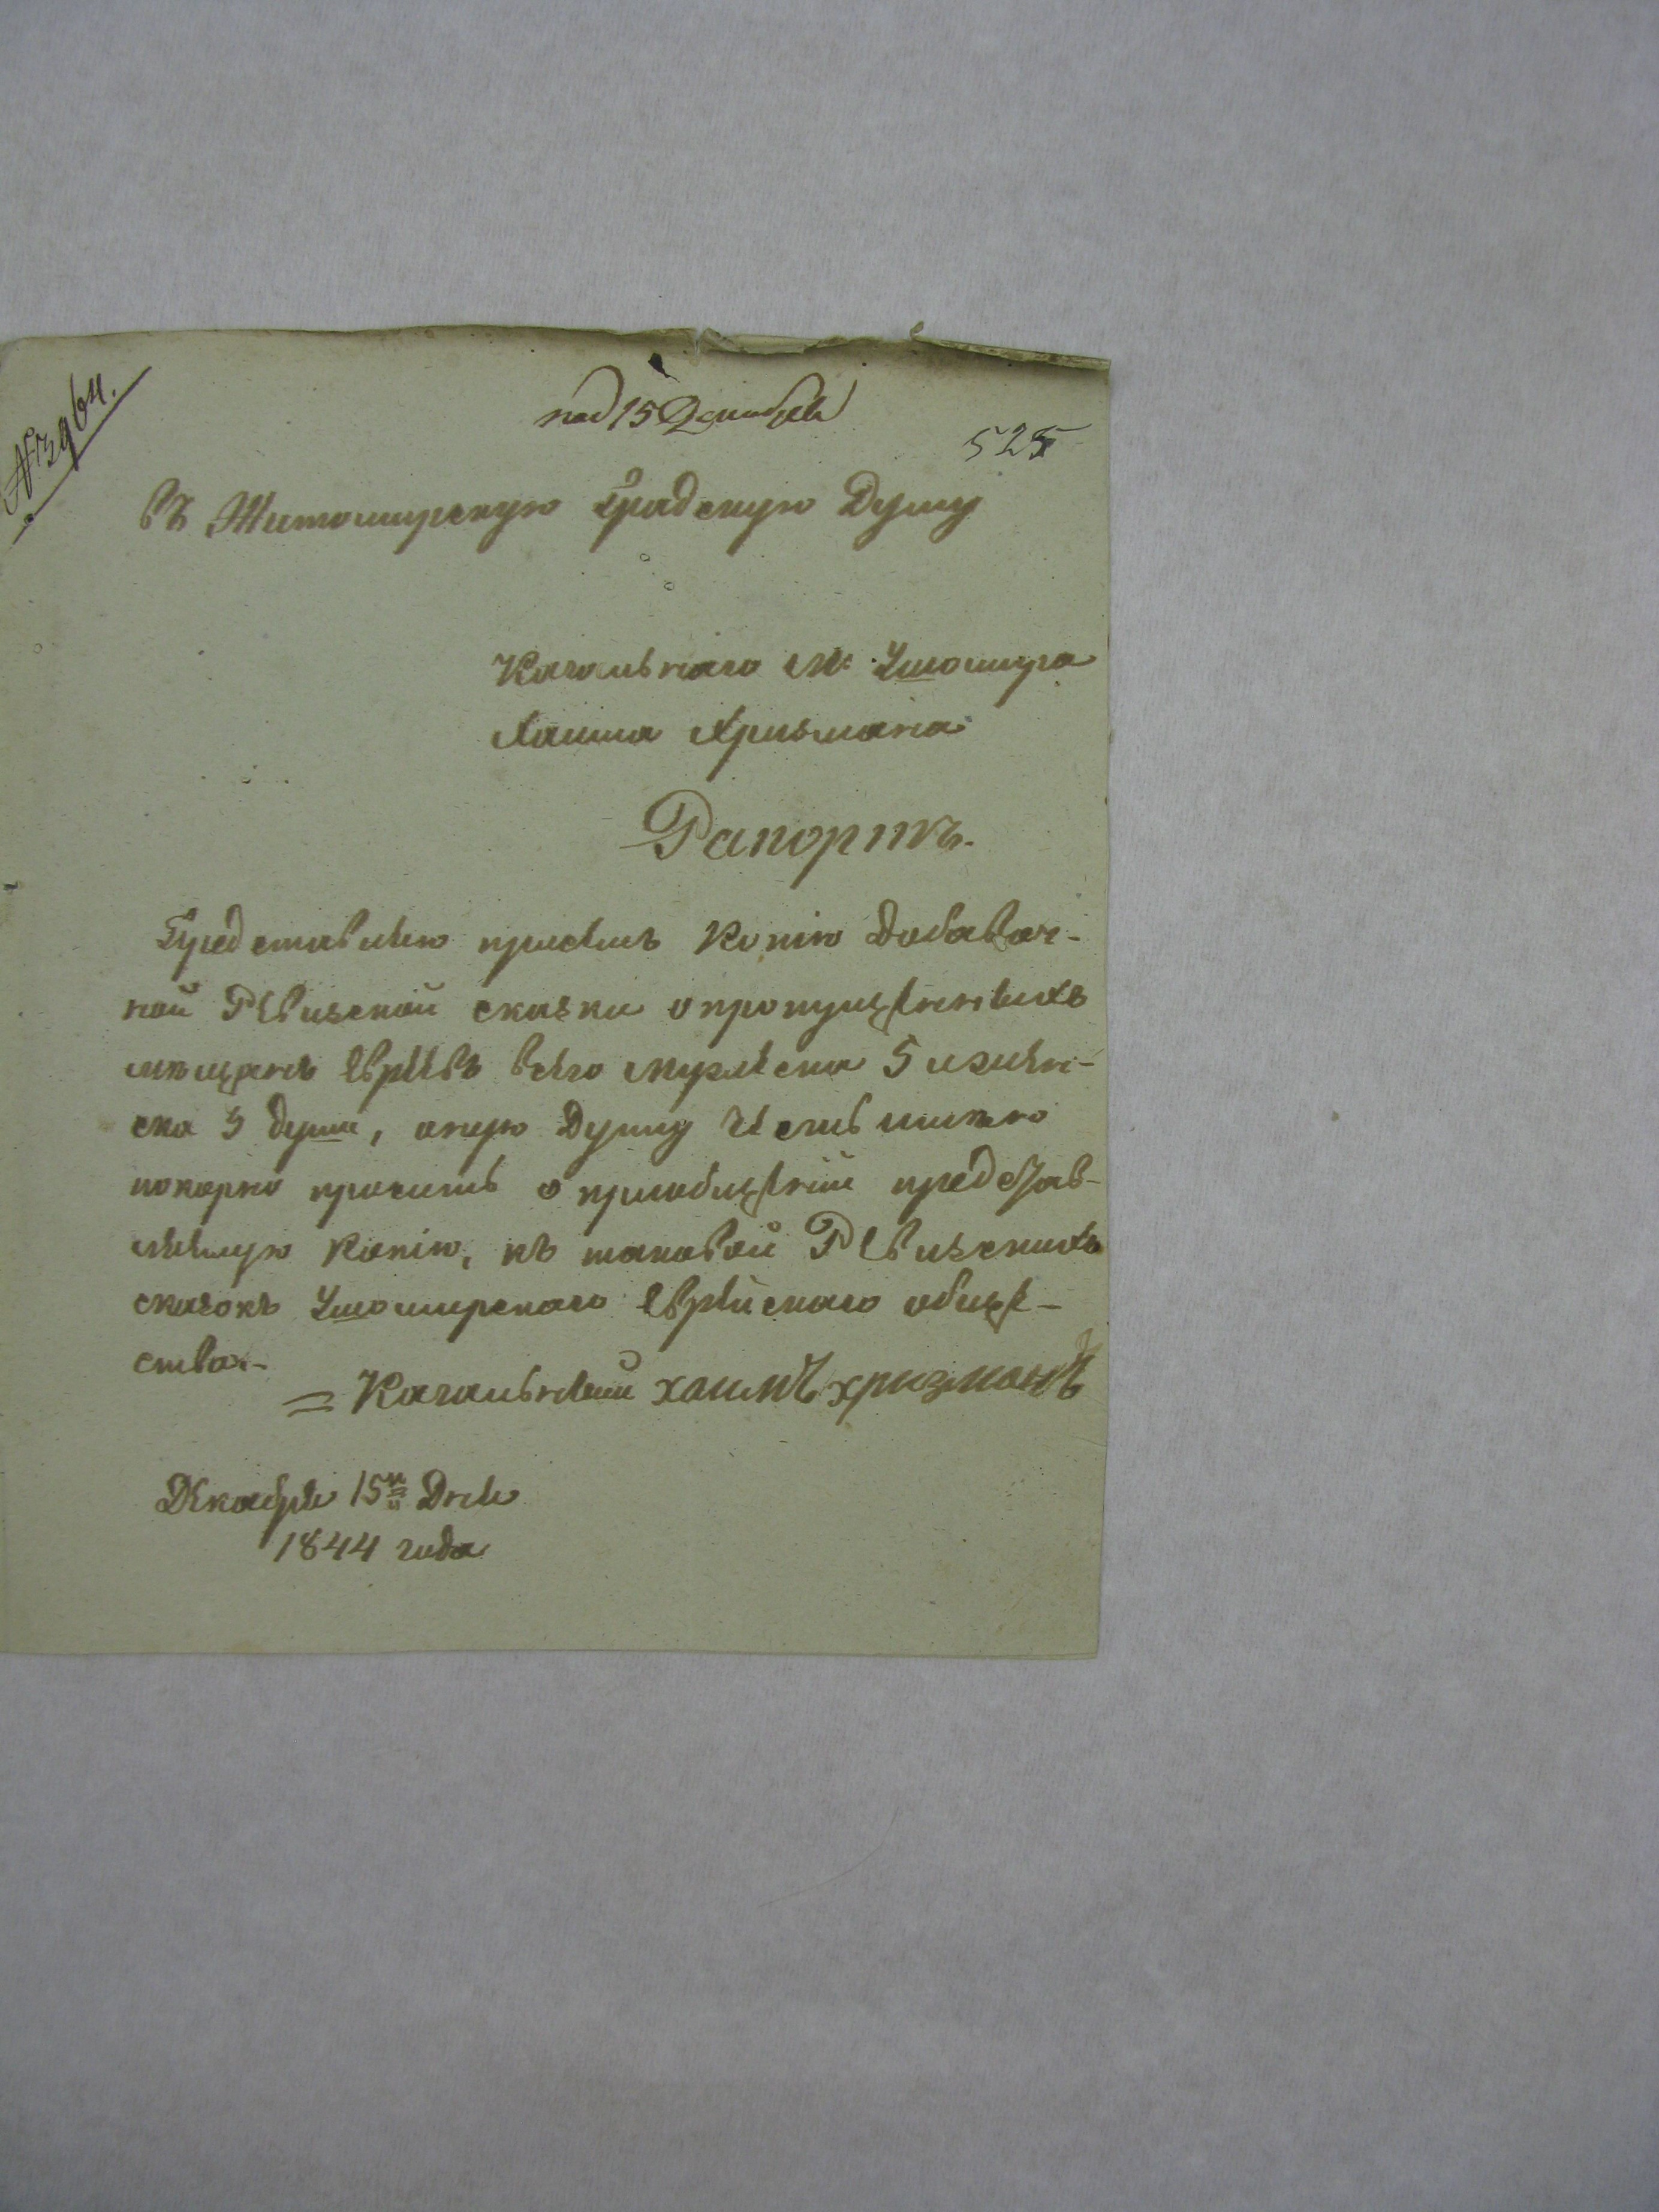 № 3964.
под 15 Декабря
525
въ Житомирскую Градскую Думу
Кагальнаго М: Ушомира
Хаима Хризмана
Рапортъ.
Представляю присемъ Копію Добавоч-
ной Ревизской сказки опропущенныхъ
мѣщанъ евреевъ всего мужеска 5 иженс-
ска 3 души, оную Думу Честь имѣю
покорно просить о приобщеніи представ-
ляемую Копію, къ таковой Ревизскихъ
сказокъ Ушомирскаго еврейскаго обще-
ства.-
= Кагальный хаимъ хризманъ
Декабря 15го Дня
1844 года